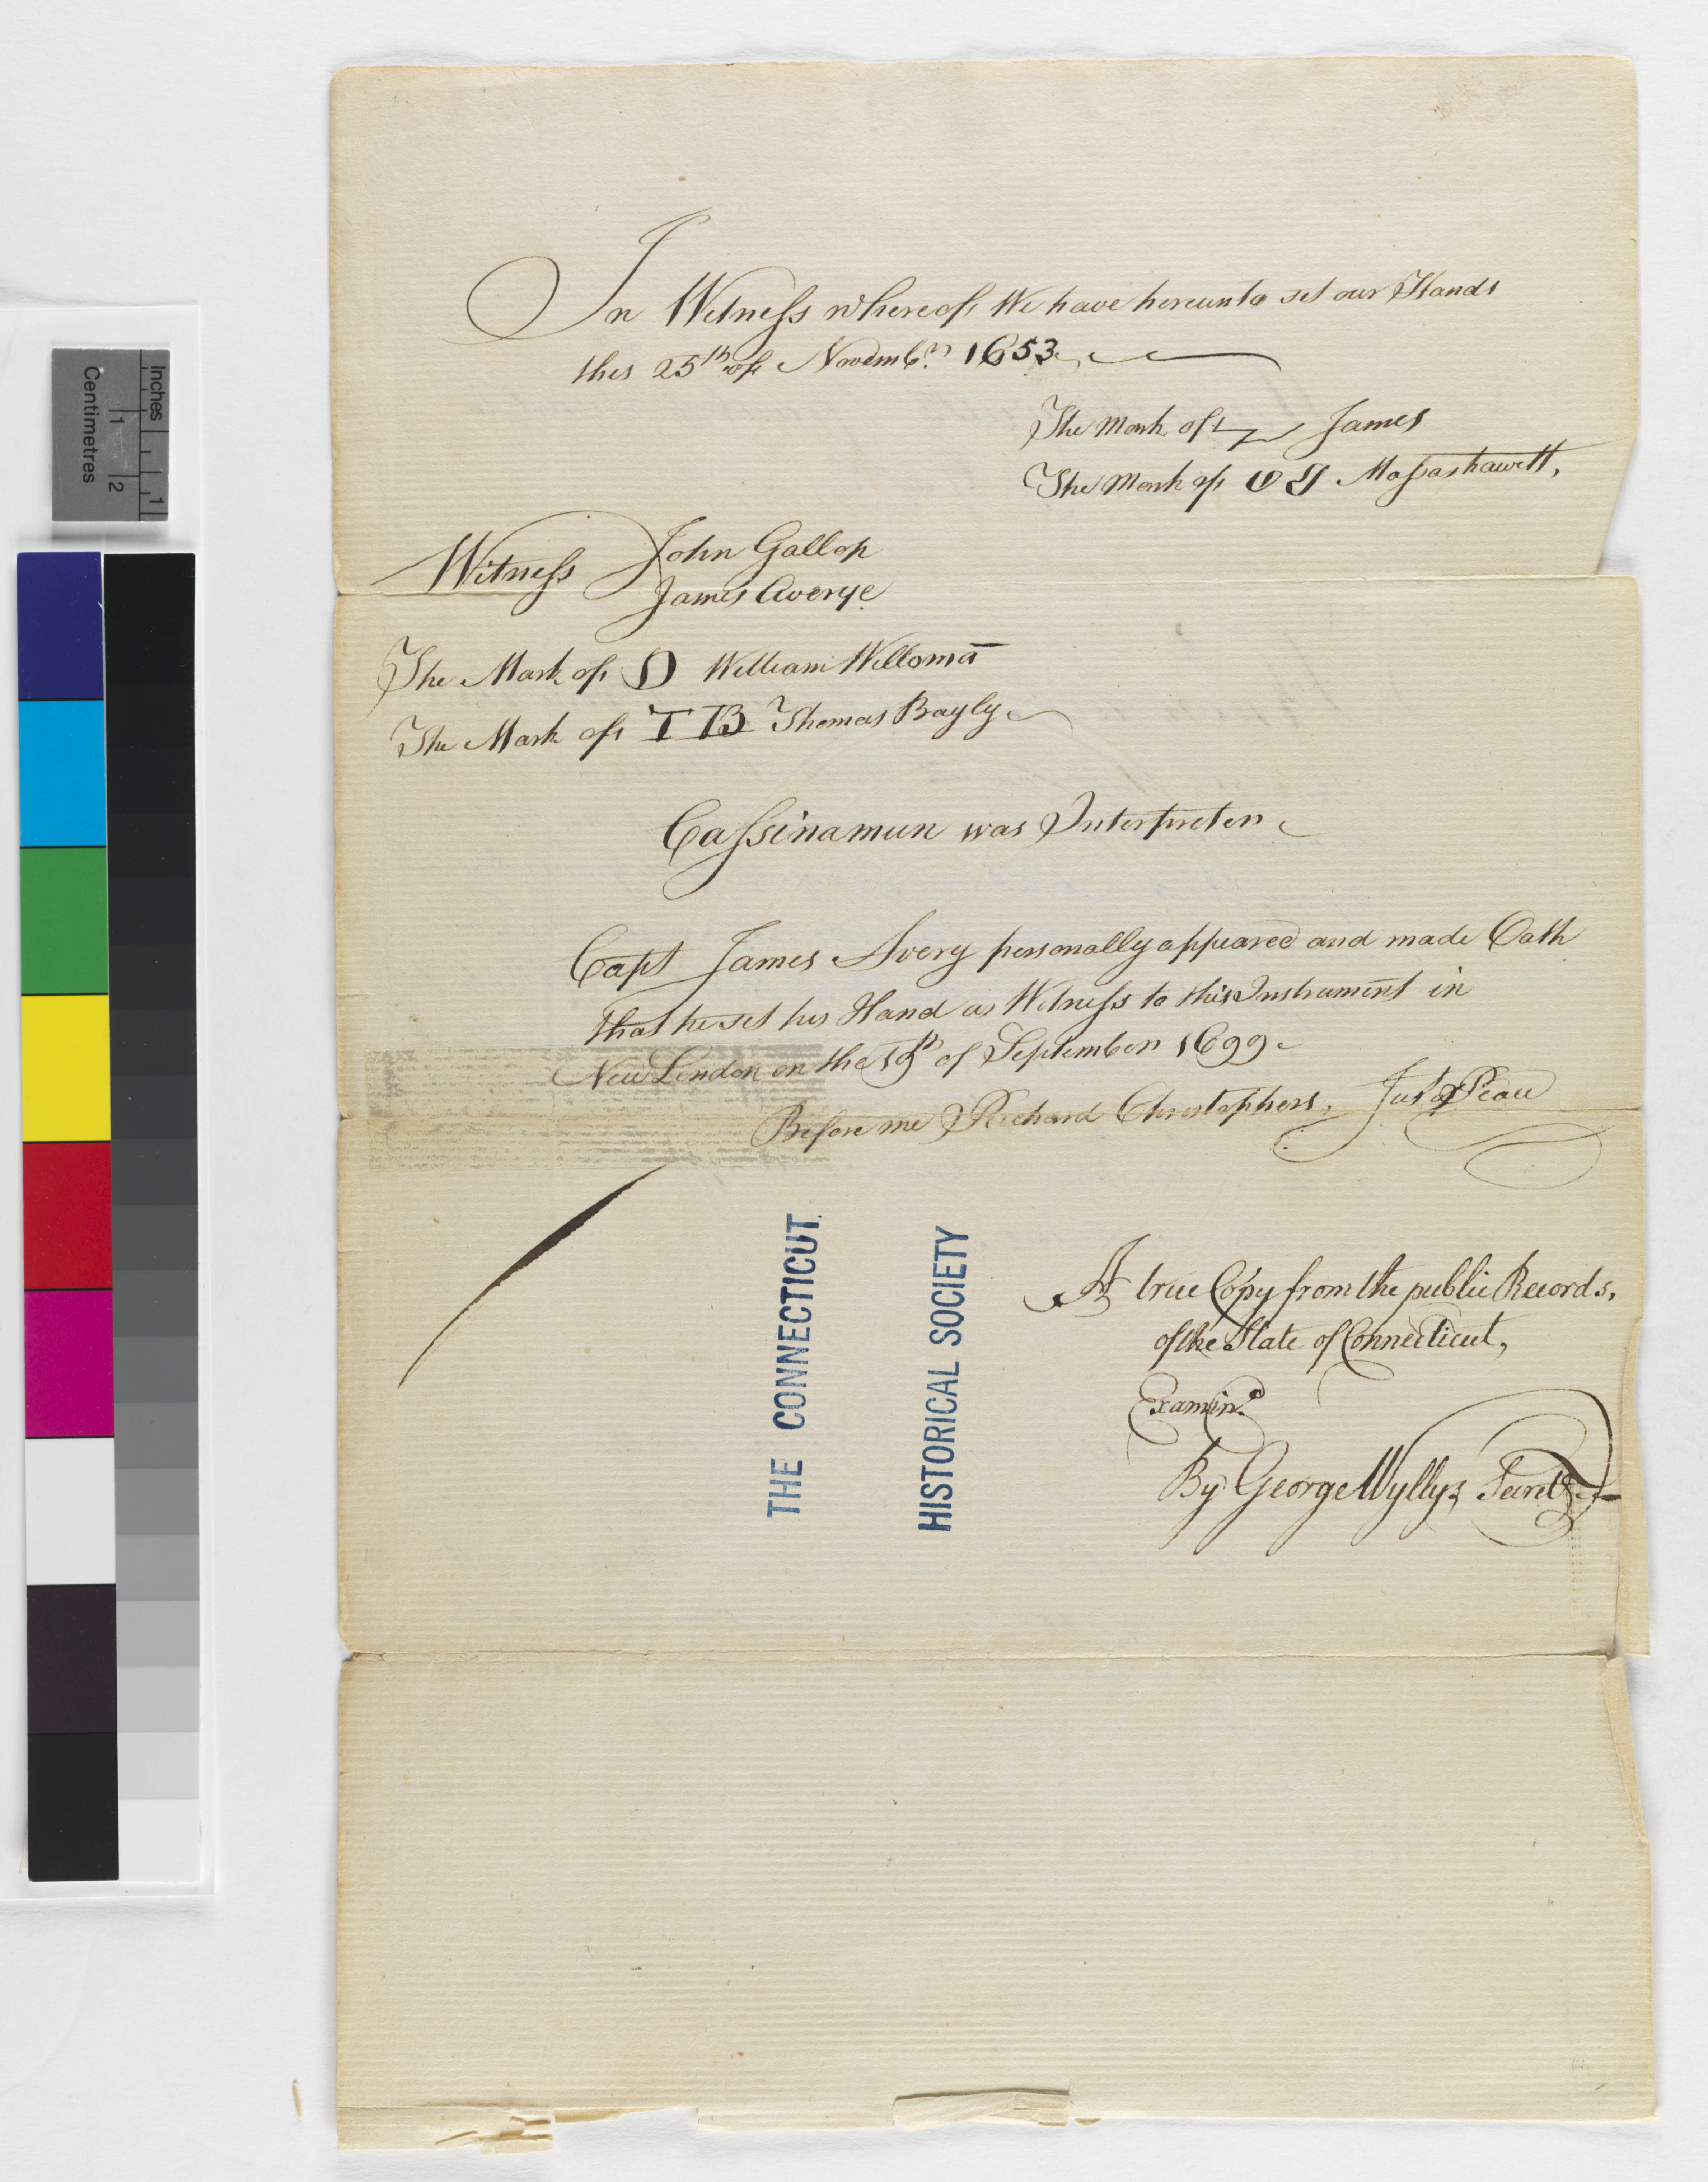 In Witneſs whereof We have hereunto set our Hands
this 25th of Novembr. 1653
The Mark of James
The Mark of Maſsashawitt,
Witneſs John Gallop
James Averye
The Mark of William Willomā
The Mark of T B Thomas Bayly
Caſsinamun was Interpreter
Capt James Avery personally appeared and made Oath
that he set his Hand as Witneſs to this Instrument in
New London on the 19th of September 1699
Before me Richard Christophers, Just Peace
A true Copy from the public Records,
of the State of Connecticut,
Examind.
By George Wyllys Secrety
THE CONNECTICUT
HISTORICAL SOCIETY
Inches
1
1 2
Centimetres